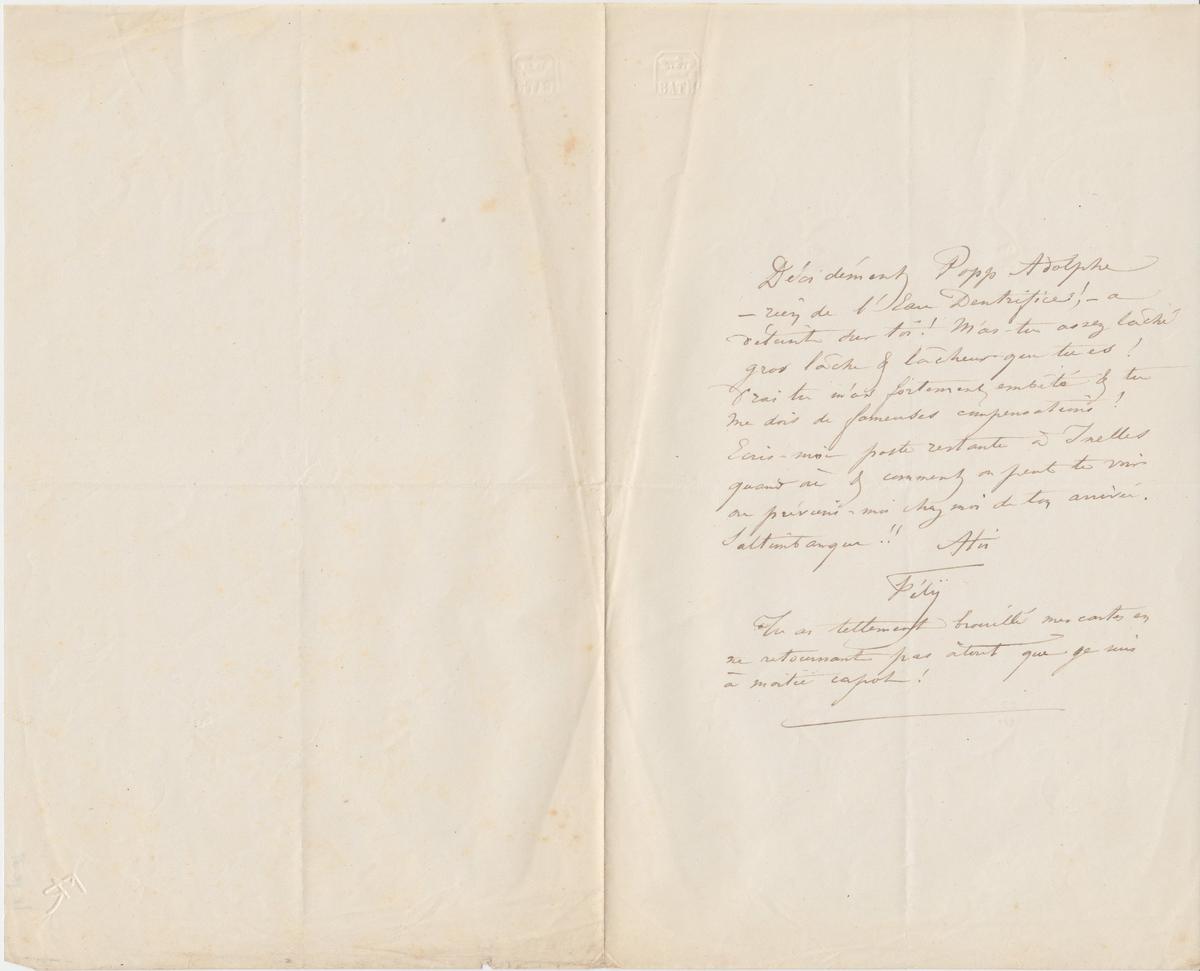 BATH
Décidément Popp Adolphe
– rien de l'Eau Dentrifice! – a
déteint sur toi! M'as-tu assez lâché
gros lâche & lâcheur que tu es!
Vrai tu m'as fortement embêté & tu
me dois de fameuses compensations!
Ecris-moi poste restante à Ixelles
quand où & comment on peut te voir
ou préviens-moi chez moi de ton arrivée.
Saltimbanque!! A toi
Fély
Tu as tellement brouillé mes cartes en
ne retournant pas atout que je suis
à moitié capot!